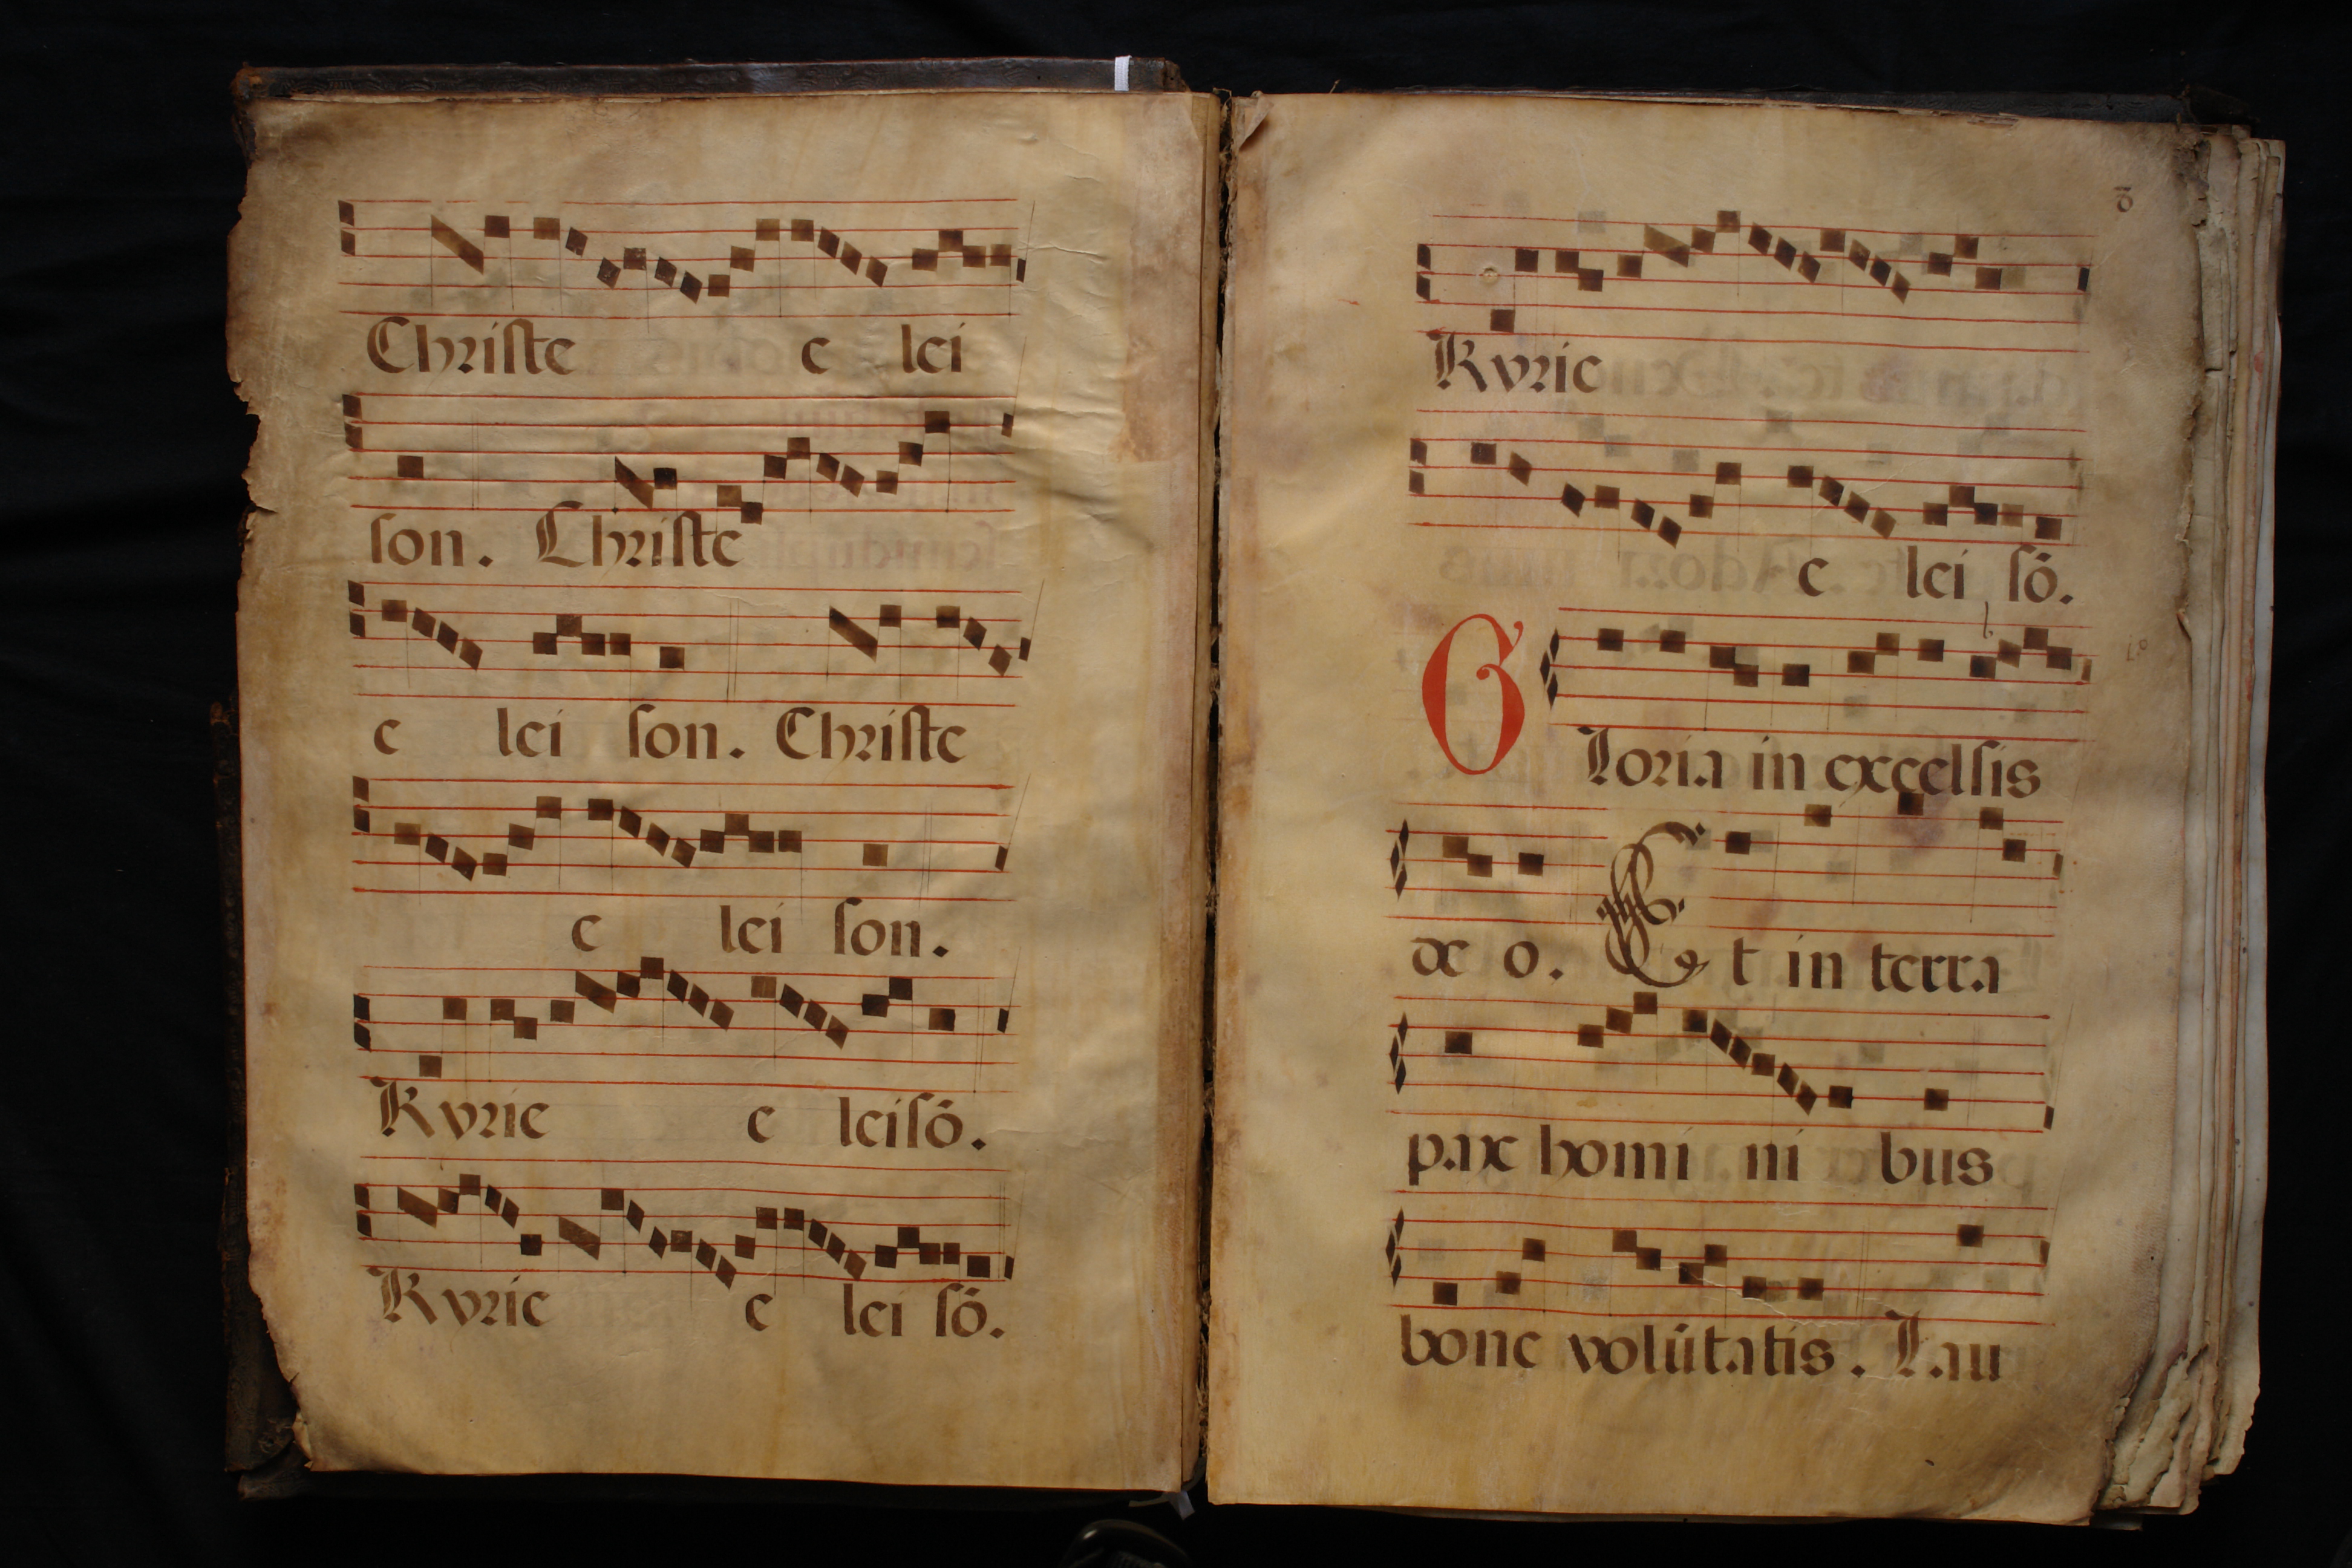 Chriſte e lei
ſon. Chriſte
e lei ſon. Chriſte
e lei ſon.
Kyrie e leiſō.
Kyrie e lei ſō.
Kyrie
e lei ſō.
Gloria in excelſis
de o. Et in terra
pax homi ni bus
bone volūtatis. Lau